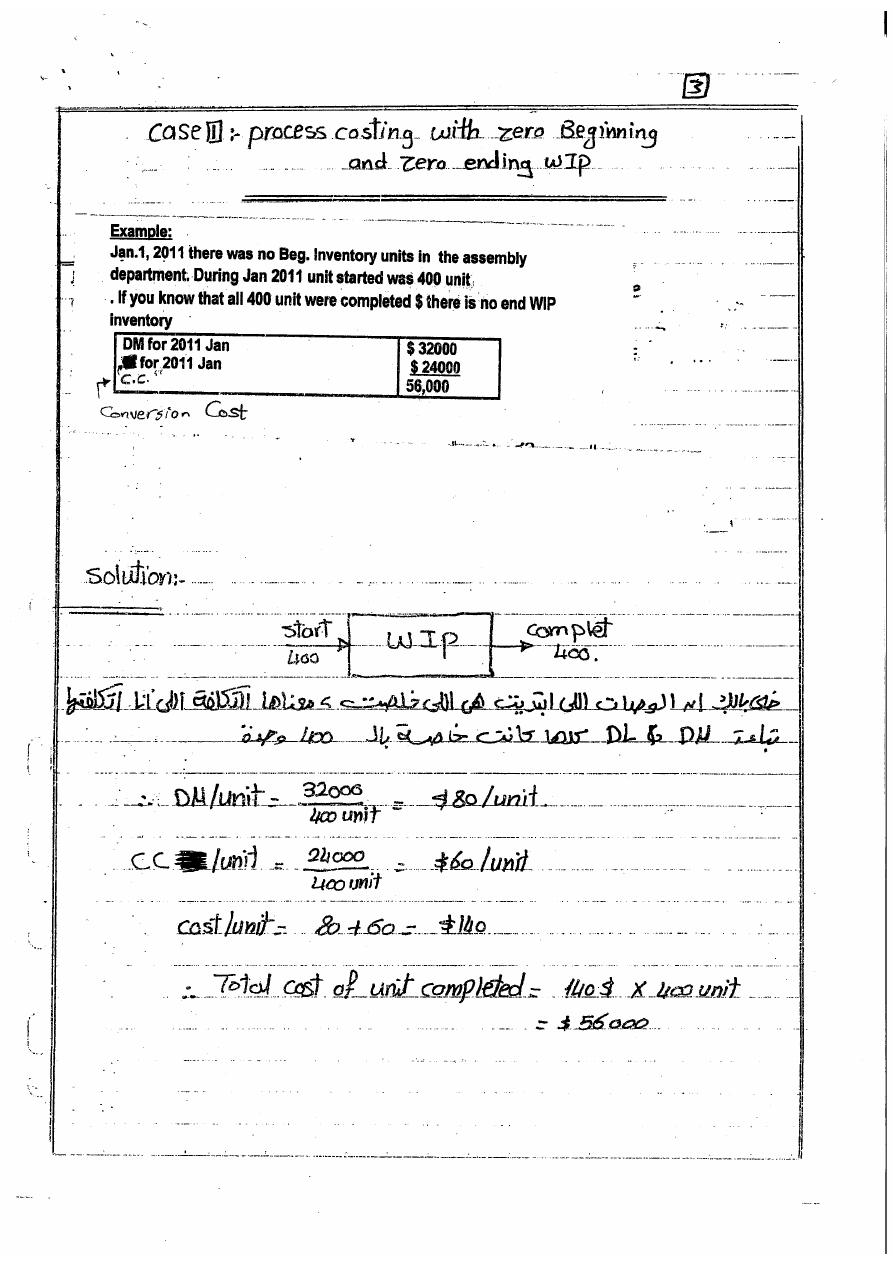 3
case 1 :- process costing with zero Beginning
and zero ending WIP
Example:
Jan.1, 2011 there was no Beg. Inventory units in the assembly
department. During Jan 2011 unit started was 400 unit
. If you know that all 400 unit were completed $ there is no end WIP
inventory
DM for 2011 Jan $ 32000
for 2011 Jan $ 24000
C.C. 56,000
Conversion Cost
Solution:-
start complet
WIP
400 400.
خلى بالك ان الوحدات اللى ابتديت هى اللى خلصت > معناها التكلفة اللى انا اتكلفتها
بتاعت DM & DL كلها كانت خاصة بالـ 400 وحدة
∴ DM/unit = 32000 / 400 unit = $80/unit.
CC /unit = 24000 / 400 unit = $60/unit
cost/unit = 80 + 60 = $140
∴ Total cost of unit completed = 140$ X 400 unit
= $ 56000